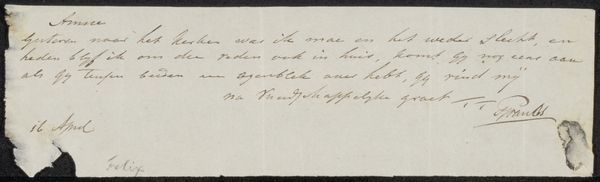 Amice
Gisteren naar het kerken was ik moe en het weder slecht, en
heden blyf ik om die reden ook in huis, komt gy nog eens aan
als Gy tusschen beiden een ogenblik over hebt, Gy vind my
na Vriendschappelyke groet
16 April
Felix